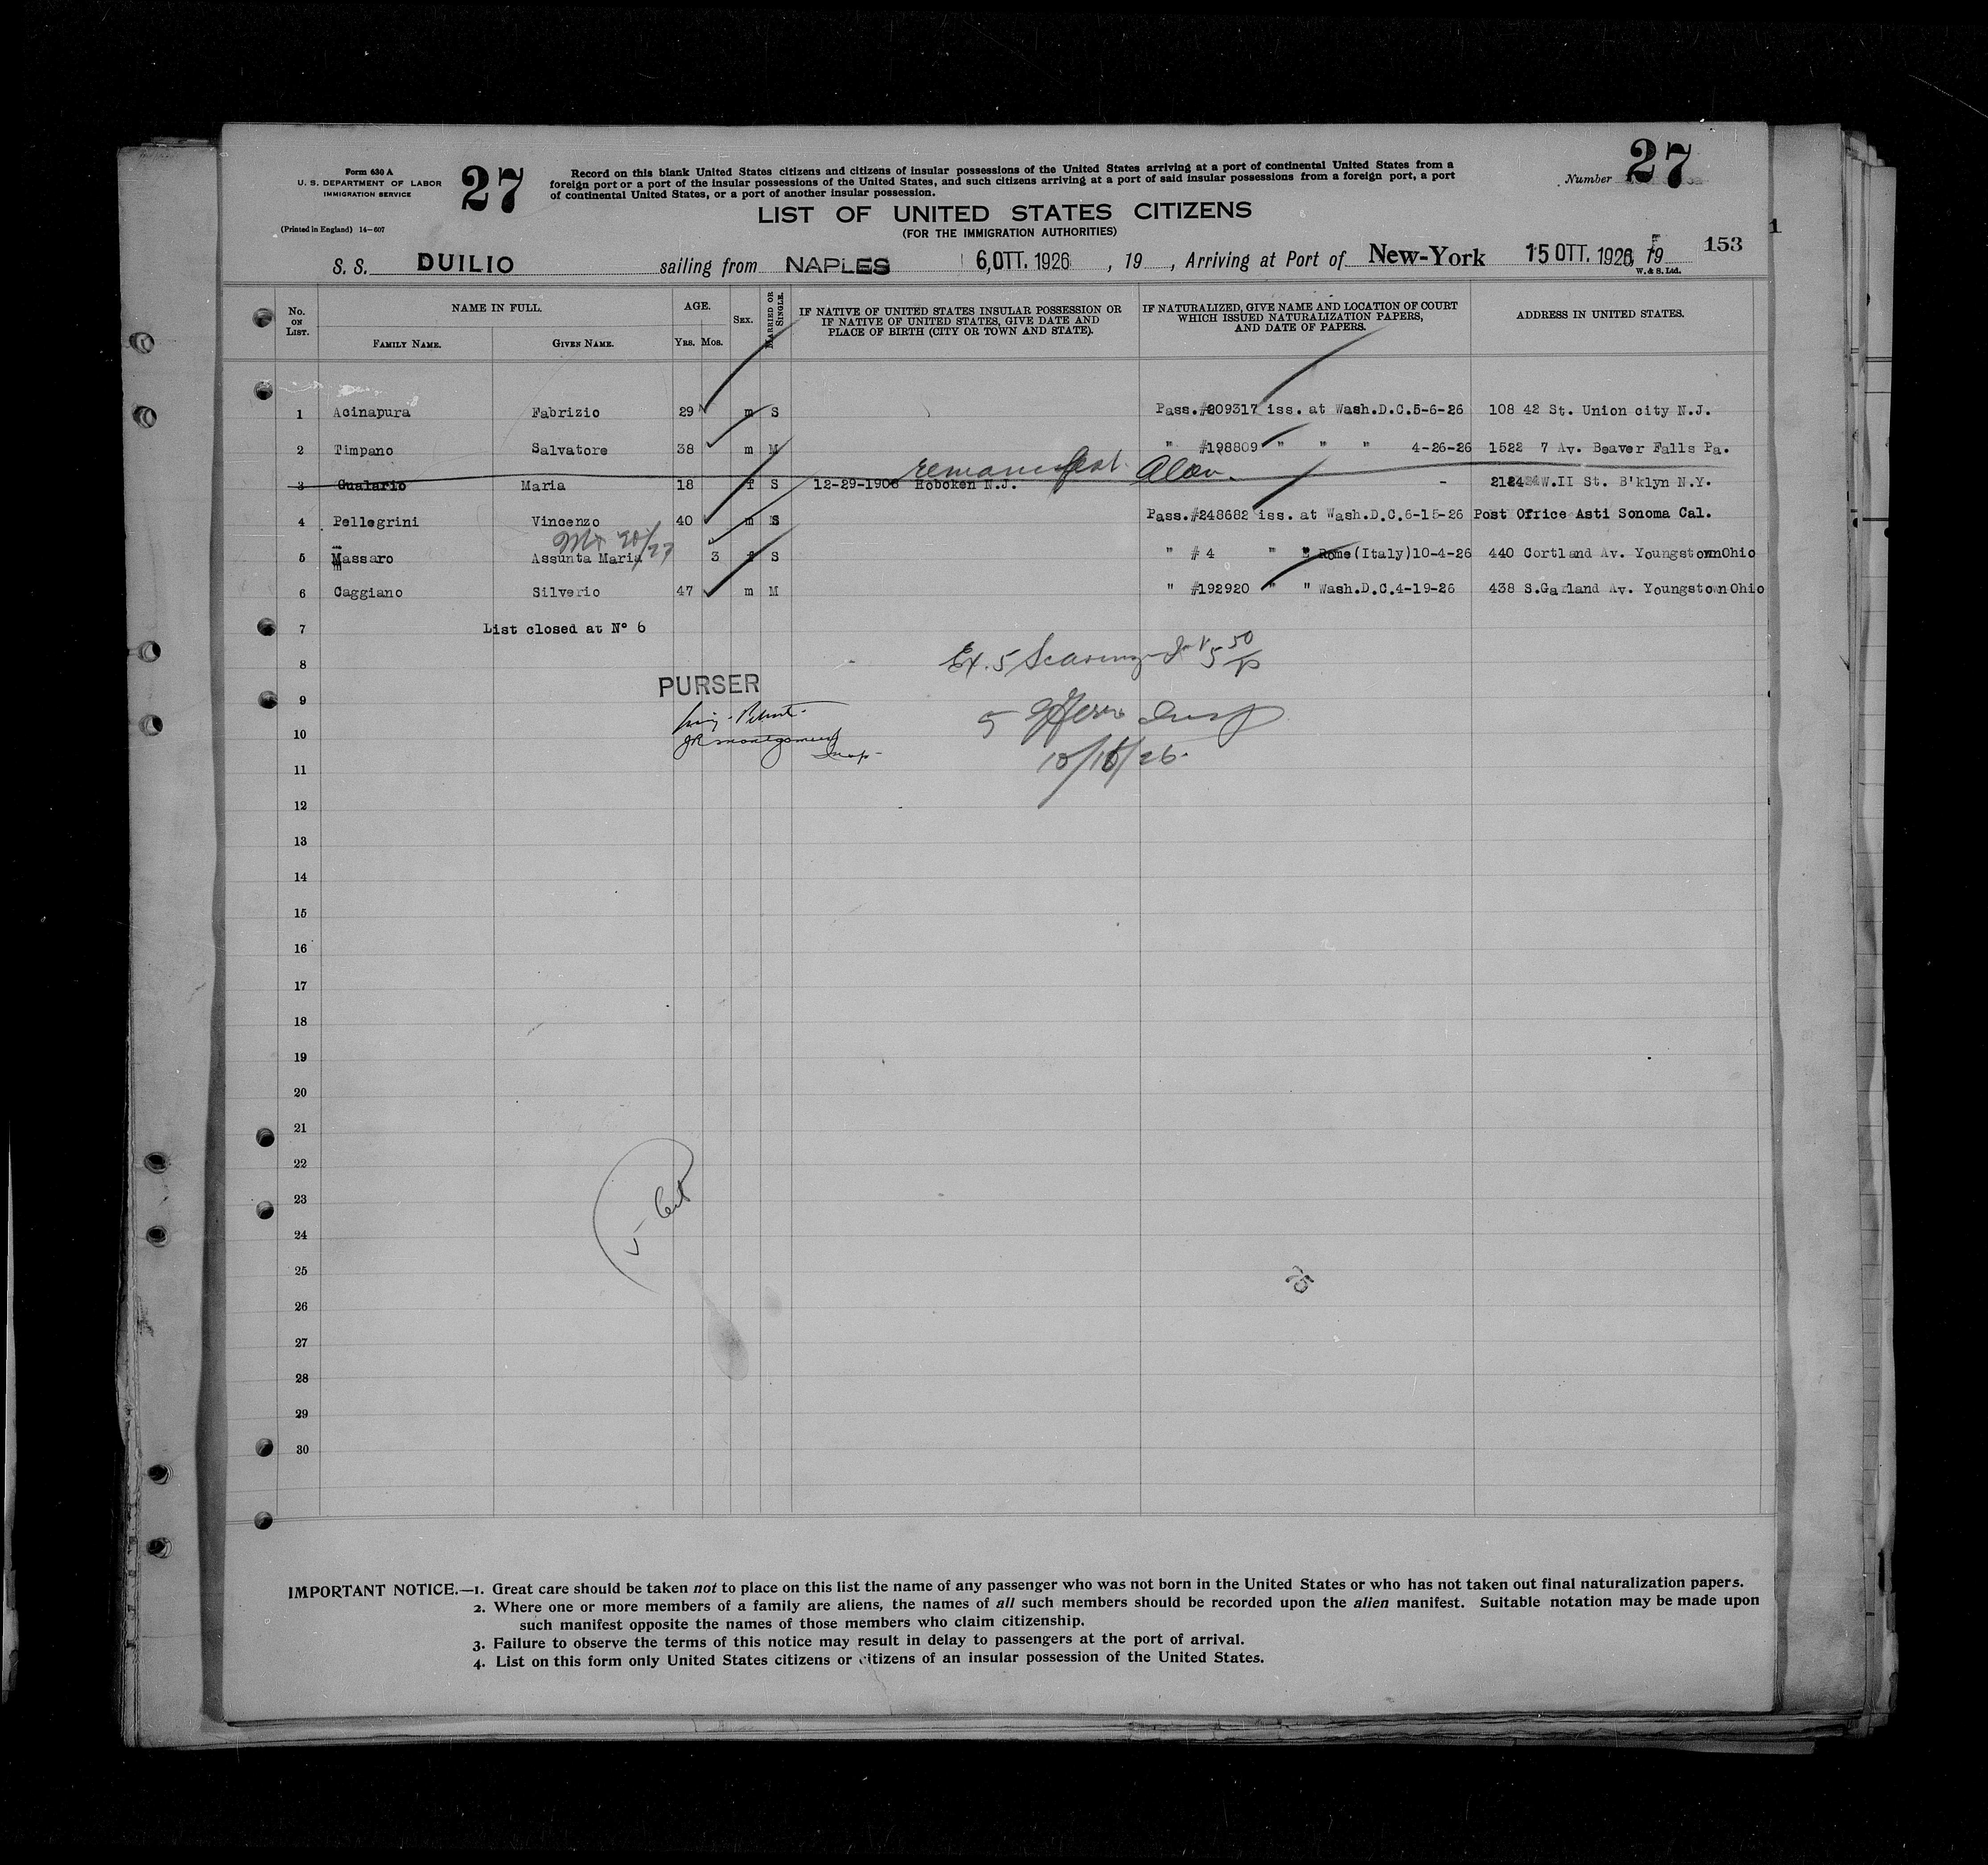 Form 630 A
U. S. DEPARTMENT OF LABOR
IMMIGRATION SERVICE
(Printed in England) 14—607
27
Record on this blank United States citizens and citizens of insular possessions of the United States arriving at a port of continental United States from a
foreign port or a port of the insular possessions of the United States, and such citizens arriving at a port of said insular possessions from a foreign port, a port
of continental United States, or a port of another insular possession.
Number 27
LIST OF UNITED STATES CITIZENS
(FOR THE IMMIGRATION AUTHORITIES)
153
1
S. S. DUILIO sailing from NAPLES 6,OTT. 1926 , 19 , Arriving at Port of New-York 15 OTT. 1926, 19
W. & S. Ltd.
No. ON LIST.
NAME IN FULL.
FAMILY NAME. GIVEN NAME.
AGE.
YRS. MOS.
SEX.
MARRIED OR SINGLE.
IF NATIVE OF UNITED STATES INSULAR POSSESSION OR
IF NATIVE OF UNITED STATES, GIVE DATE AND
PLACE OF BIRTH (CITY OR TOWN AND STATE).
IF NATURALIZED, GIVE NAME AND LOCATION OF COURT
WHICH ISSUED NATURALIZATION PAPERS,
AND DATE OF PAPERS.
ADDRESS IN UNITED STATES.
1 Acinapura Fabrizio 29 m S Pass.#209317 iss. at Wash.D.C.5-6-26 108 42 St. Union city N.J.
2 Timpano Salvatore 38 m M " #198809 " " " 4-26-26 1522 7 Av. Beaver Falls Pa.
remanifest Alien
3 Gualario Maria 18 f S 12-29-1906 Hoboken N.J. - W.II St. B'klyn N.Y.
4 Pellegrini Vincenzo 40 m S Pass.#248682 iss. at Wash.D.C.6-15-26 Post Office Asti Sonoma Cal.
5 Massaro Assunta Maria 3 f S " # 4 " " Rome(Italy)10-4-26 440 Cortland Av. Youngstown Ohio
6 Caggiano Silverio 47 m M " #192920 " " Wash.D.C.4-19-26 438 S.Garland Av. Youngstown Ohio
7 List closed at N° 6
8
PURSER
9
10
JR Montgomery
Insp
5 Insp
10/16/26
11
12
13
14
15
16
17
18
19
20
21
22
23
24
25
26
27
28
29
30
IMPORTANT NOTICE.—1. Great care should be taken not to place on this list the name of any passenger who was not born in the United States or who has not taken out final naturalization papers.
2. Where one or more members of a family are aliens, the names of all such members should be recorded upon the alien manifest. Suitable notation may be made upon
such manifest opposite the names of those members who claim citizenship.
3. Failure to observe the terms of this notice may result in delay to passengers at the port of arrival.
4. List on this form only United States citizens or citizens of an insular possession of the United States.